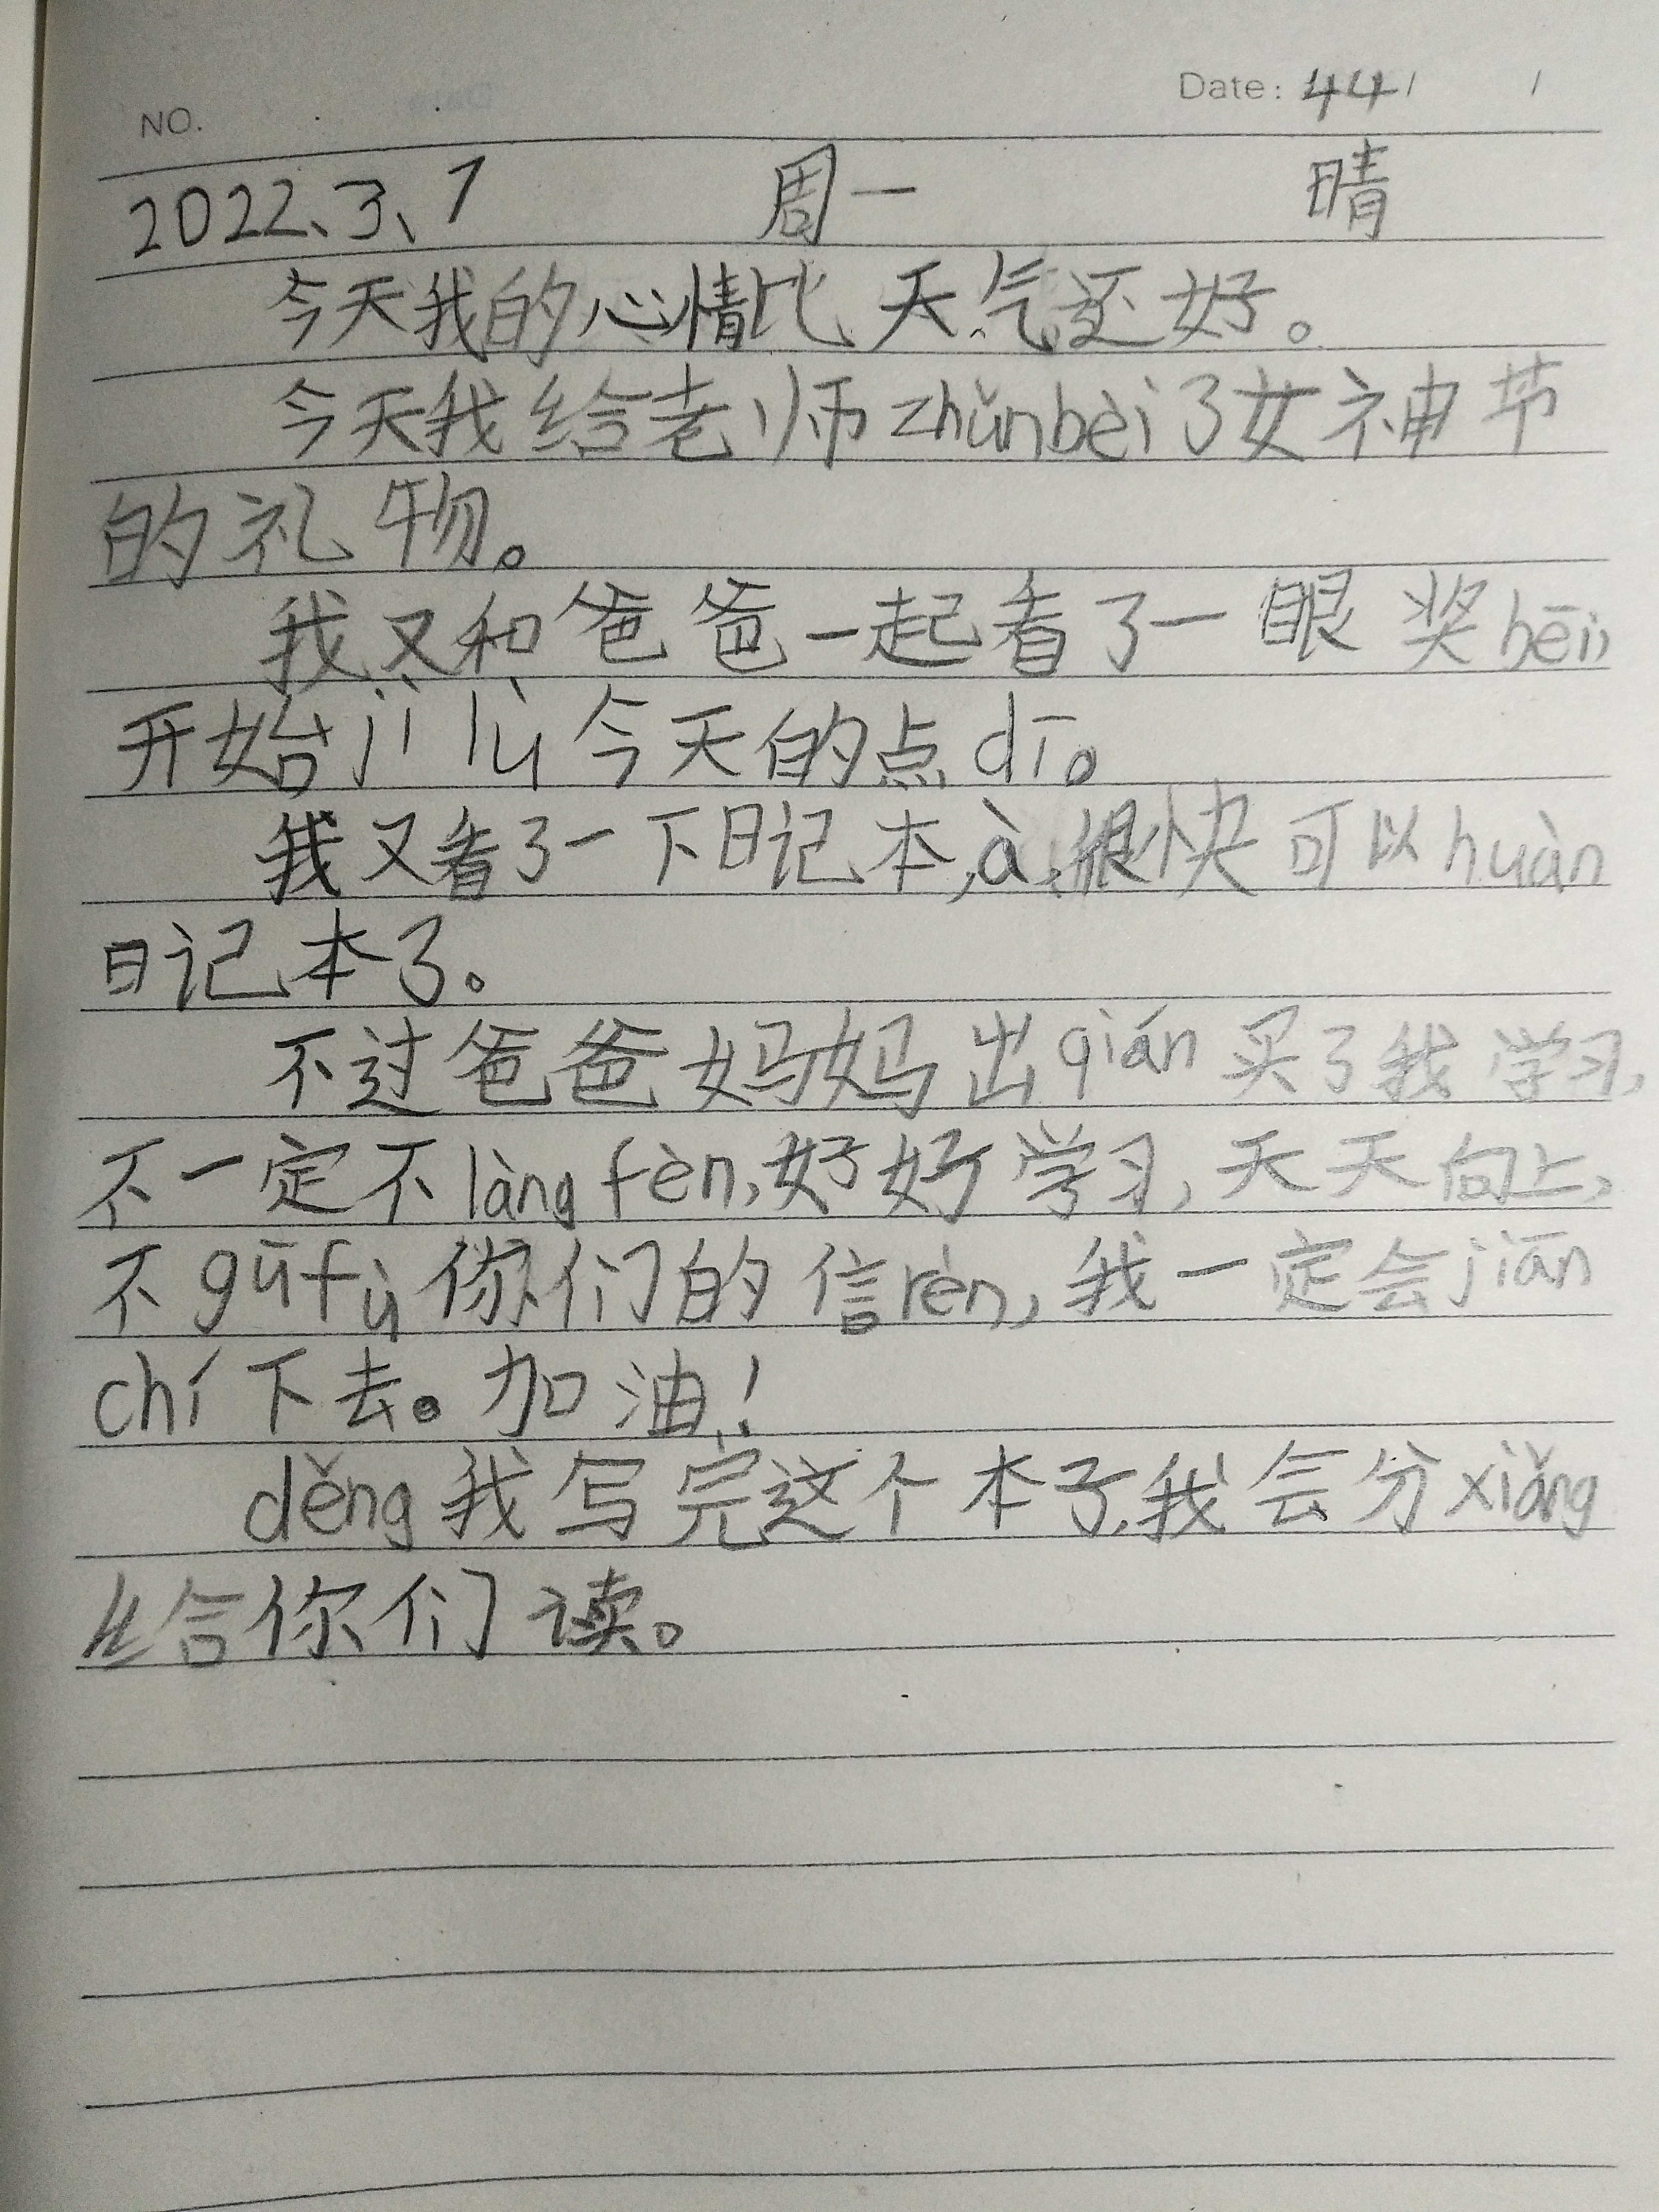 NO. Date: 44 / /
2022、3、7 周一 晴
今天我的心情比天气还好。
今天我给老师zhǔnbèi了女神节
的礼物。
我又和爸爸一起看了一眼奖bēi,
开始jì lù今天的点dī。
我又看了一下日记本,à,很快可以huàn
日记本了。
不过爸爸妈妈出qián买了我学习,
不一定不làng fèn,好好学习,天天向上,
不gūfù你们的信rèn,我一定会jiān
chí下去。加油!
děng我写完这个本子,我会分xiǎng
给你们读。